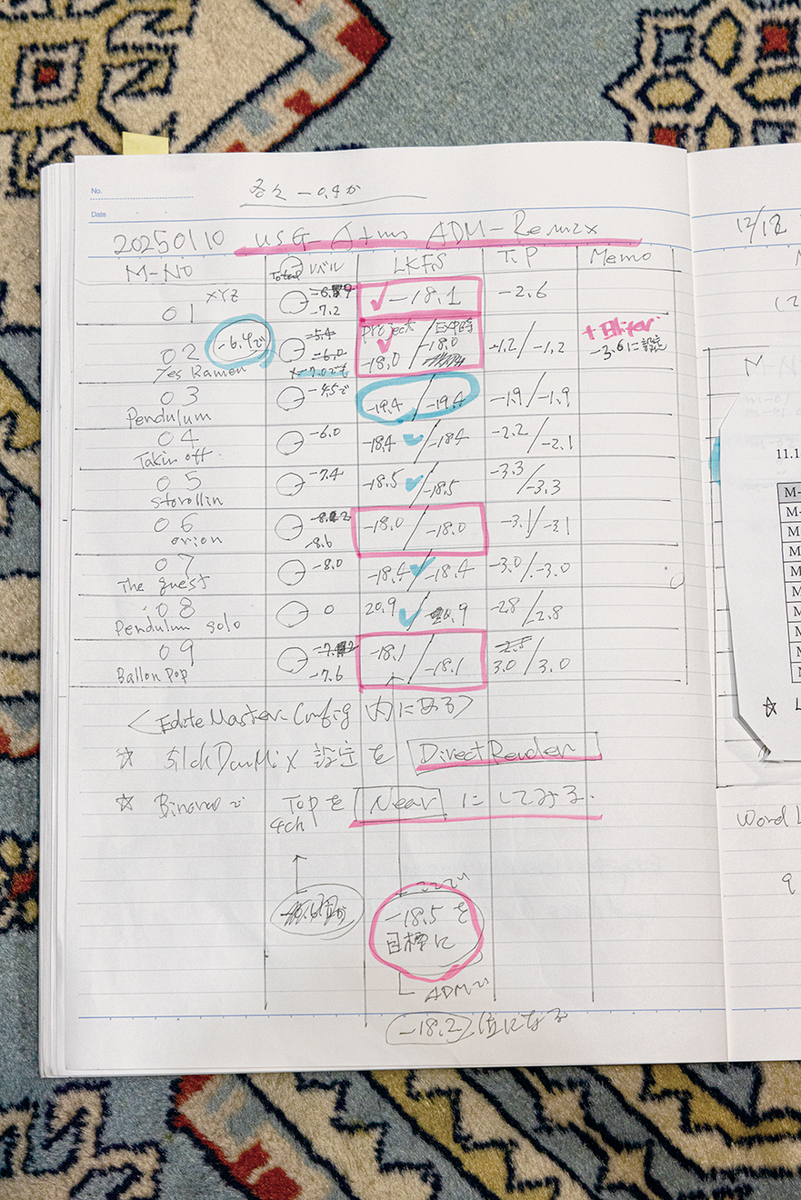 No.
各々 -0.4か
Date
20250110 USG-Atmos ADM-Remix
M-NO Total レベル LKFS T.P Memo
01 XYZ -7.2 -18.1 -2.6
02 Yes Ramen -6.4で -5.4 -6.0 -7.0でも Project -18.0 / -18.0 -1.2 / -1.2 -3.6に設定
03 Pendulum -4.5で -19.4 / -19.4 -1.9 / -1.9
04 Takin off. -6.0 -18.4 / -18.4 -2.2 / -2.1
05 Storollin -7.4 -18.5 / -18.5 -3.3 / -3.3
06 orion -8.6 -18.0 / -18.0 -3.1 / -3.1
07 The guest -8.0 -18.4 / -18.4 -3.0 / -3.0
08 Pendulum solo 0 20.9 / 20.9 -2.8 / 2.8
09 Ballon Pop -7.6 -18.1 / -18.1 3.0 / 3.0
<Edite Master-Config 内にある>
☆ 設定を Direct Render
☆ Top 4ch を Near にしてみる.
-18.5を
目標に
ADMで
-18.2 位になる
12/12
M
11.1
M-
M-
M
M
M
M
M
M
☆ L
Word L
9